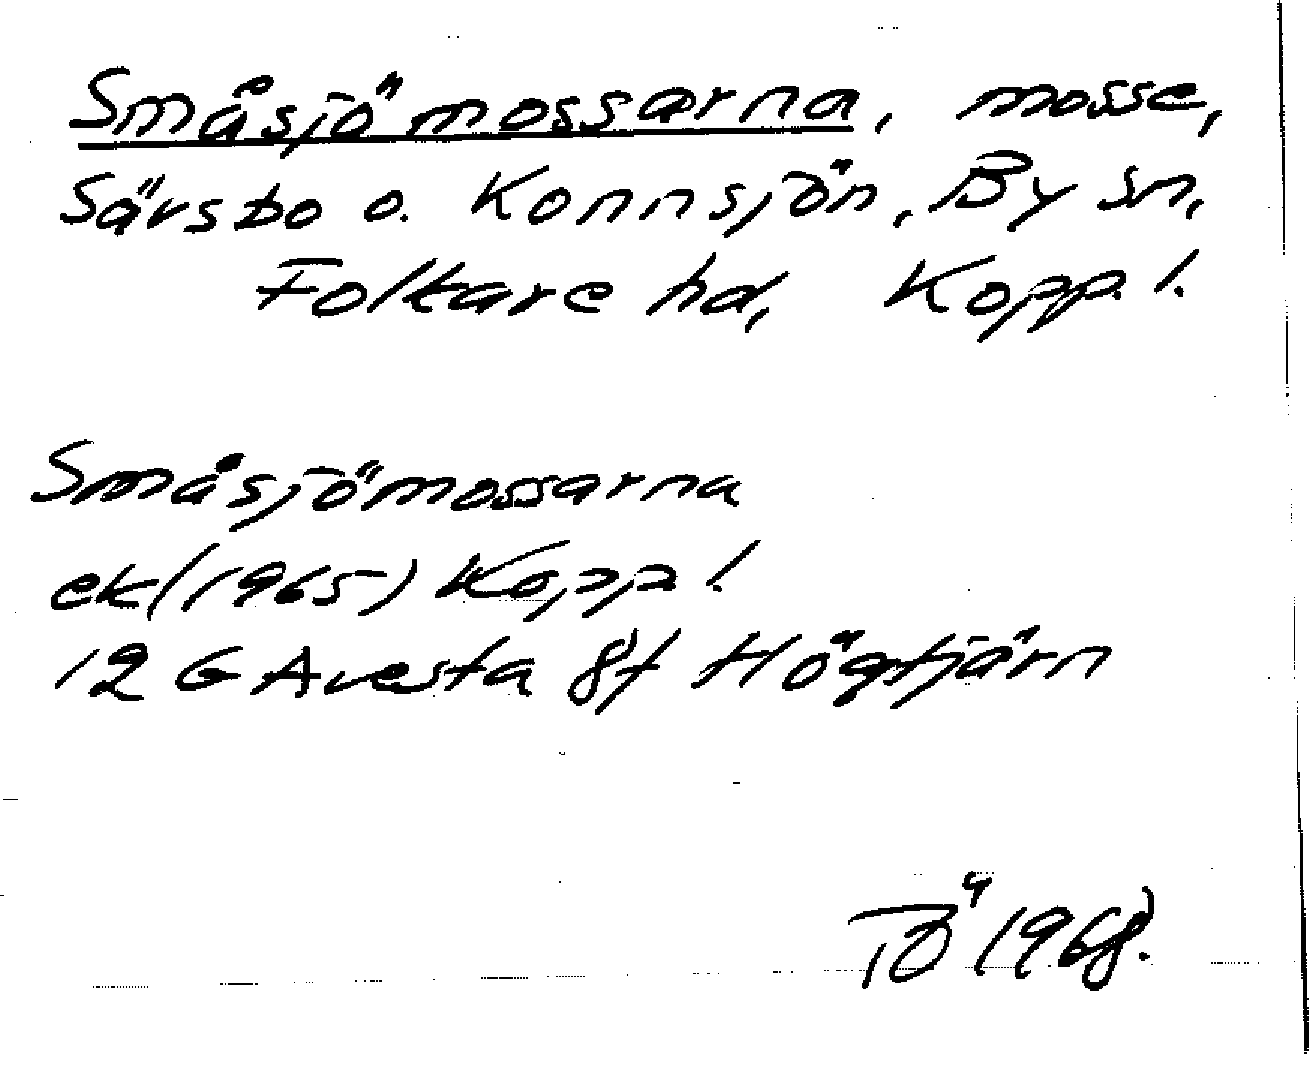 Småsjömossarna, mosse,
Särsbo o. Konnsjön, By sn,
Folkare hd, Kopp. l.
Småsjömossarna
ek (1965) Kopp l.
12 G Avesta 8f Högtjärn
TÖ 1968.